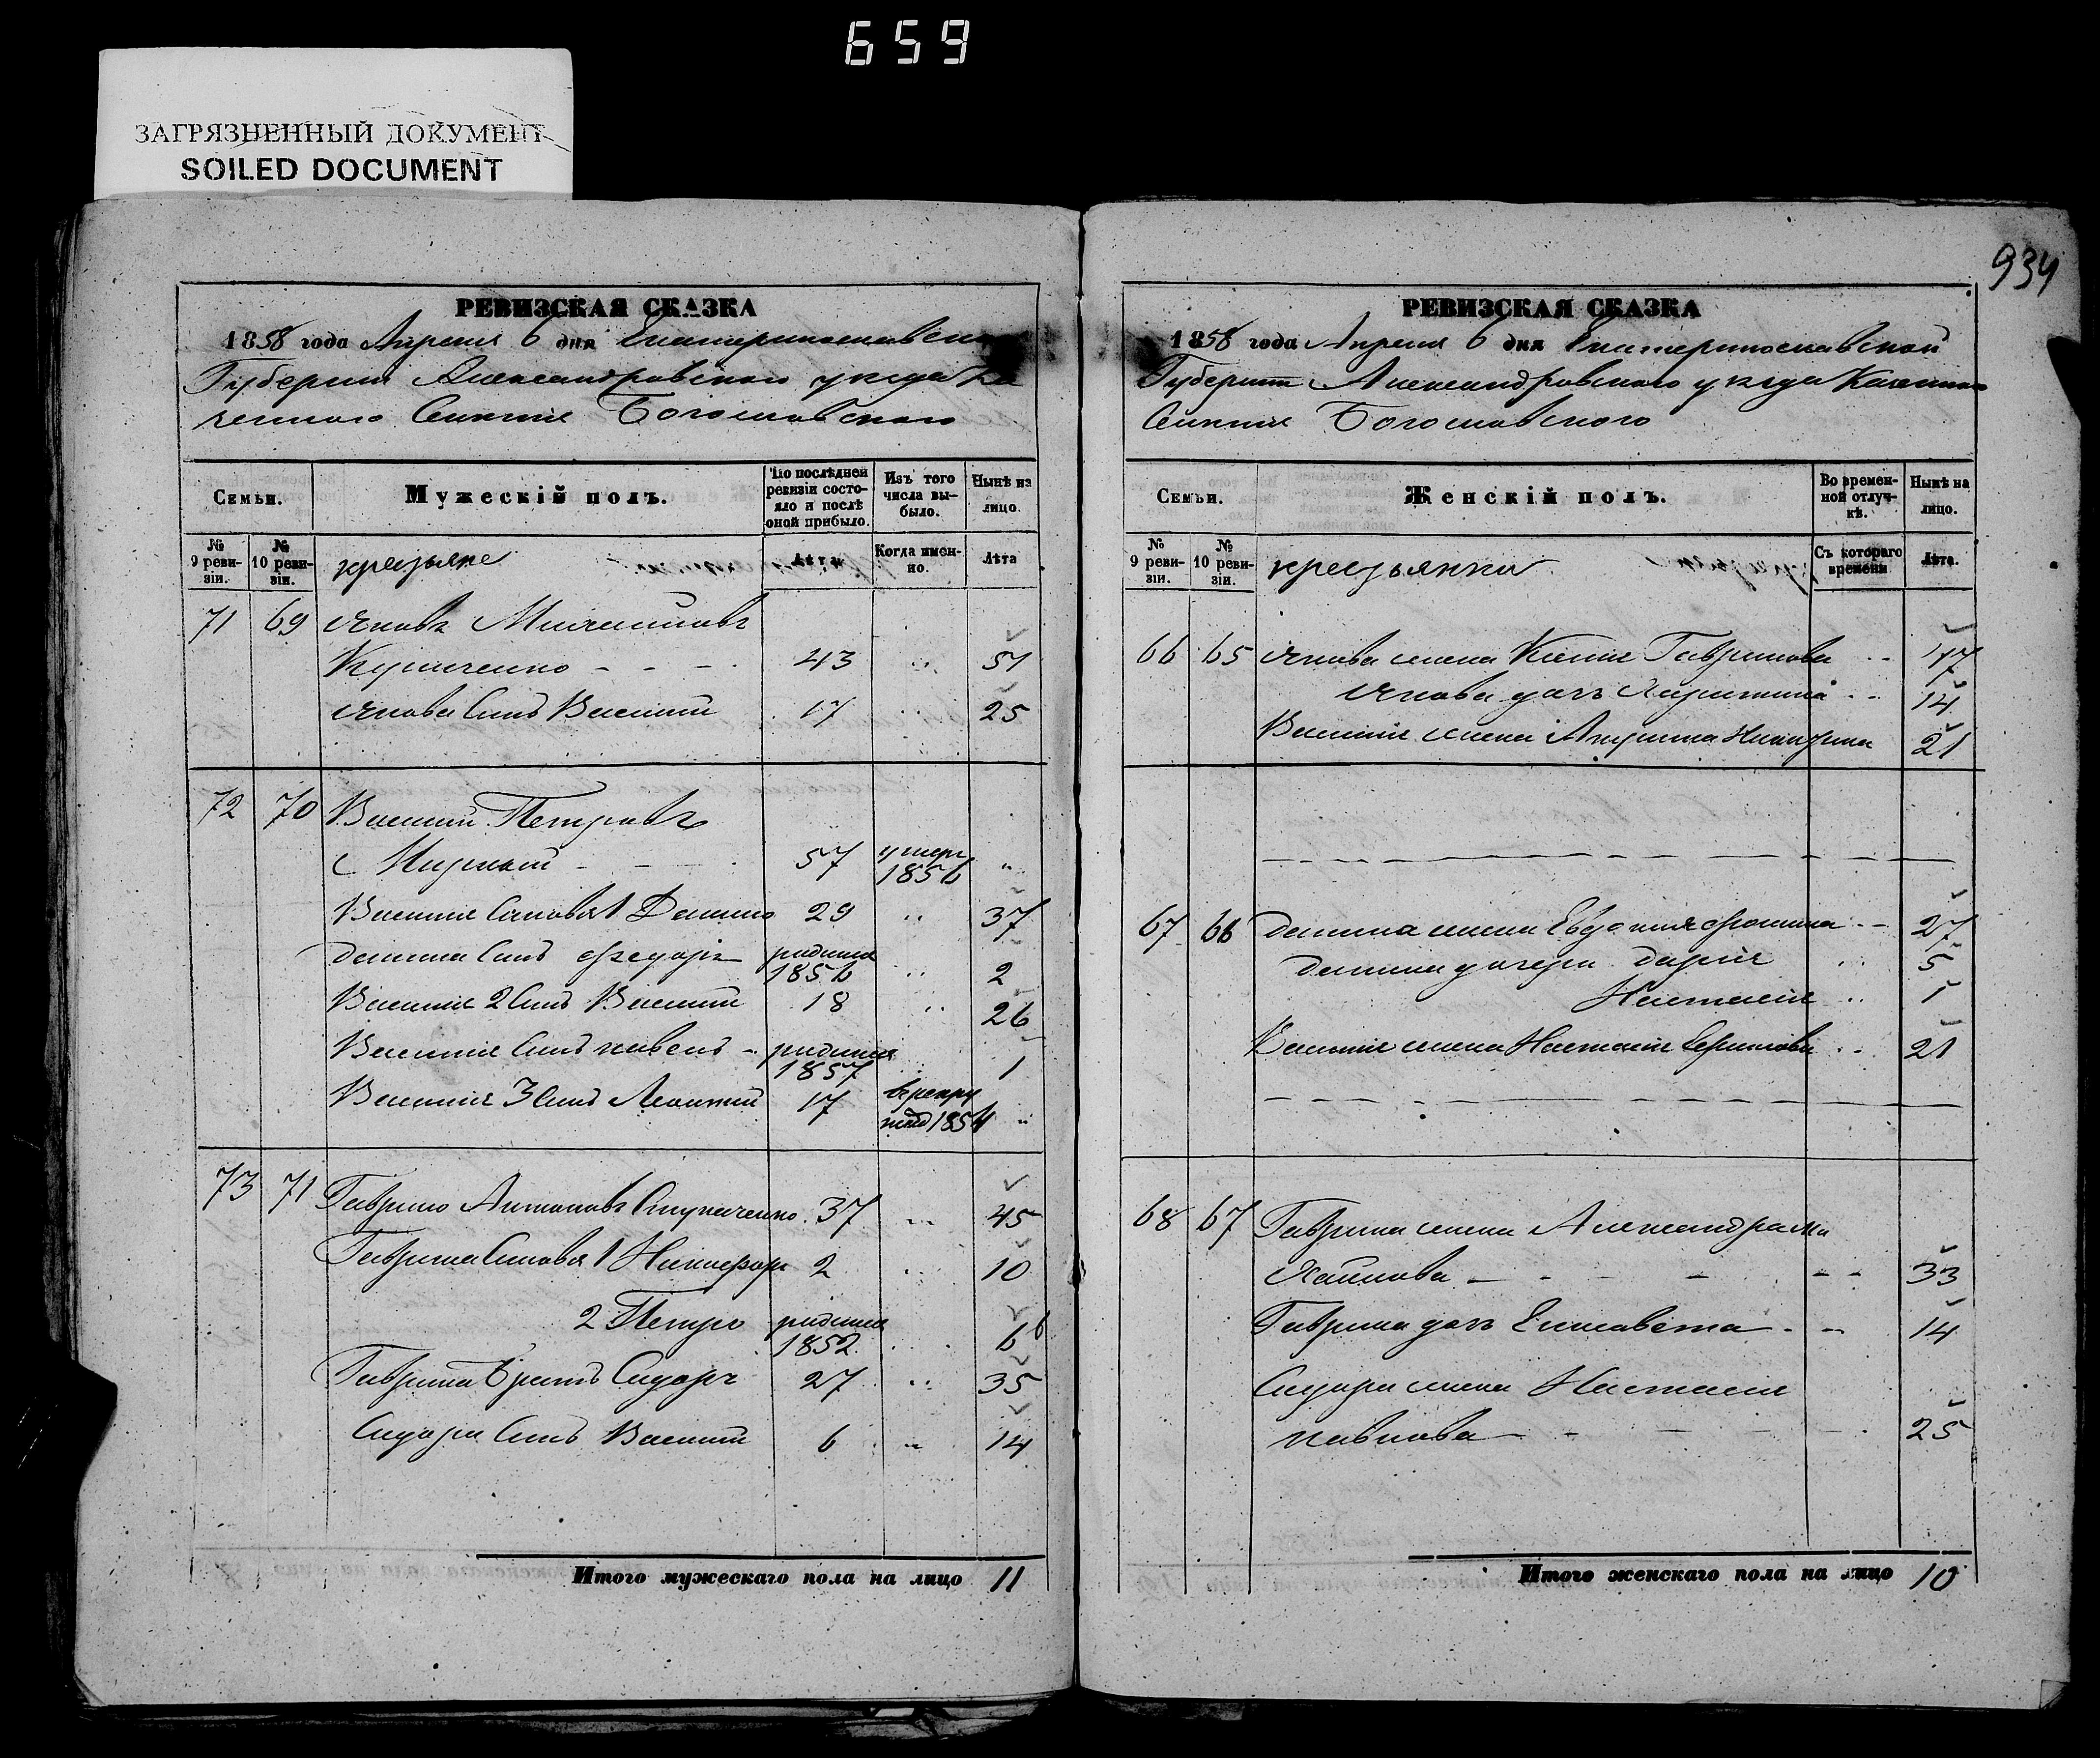 659
ЗАГРЯЗНЕННЫЙ ДОКУМЕНТ
SOILED DOCUMENT
РЕВИЗСКАЯ СКАЗКА
1858 года Апреля 6 дня Екатеринославской
Губернии Александровского уезда Ка
зенного Селения Богословского
Семьи.
Мужескій полъ.
По послѣдней ревизіи состояло и послѣ оной прибыло.
Изъ того числа выбыло.
Нынѣ на лицо.
№ 9 ревизіи.
№ 10 ревизіи.
крестьяне
Лѣта
Когда именно.
Лѣта
71 69 Яковъ
43 51
Якова Сынъ Василий 17 25
72 70 Василий Петровъ
57 умеръ 1856
Василия Сыновья 1 Данило 29 37
Данила Сынъ Федоръ родился 1856 2
Василия 2 Сынъ Василий 18 26
Василия Сынъ Павелъ родился 1857 1
Василия 3 Сынъ Леонтий 17 в рекруты 1854
73 71 Гаврило Антоновъ Ступаченко 37 45
Гаврила Сыновья 1 Никифоръ 2 10
2 Петръ родился 1852 6
Гаврила братъ Сидоръ 27 35
Сидора Сынъ Василий 6 14
Итого мужескаго пола на лицо 11
934
РЕВИЗСКАЯ СКАЗКА
1858 года Апреля 6 дня Екатеринославской
Губернии Александровского уезда Казенного
Селения Богословского
Семьи.
Женскій полъ.
Во временной отлучкѣ.
Нынѣ на лицо.
№ 9 ревизіи.
№ 10 ревизіи.
крестьянки
Съ котораго времени
Лѣта.
66 65 Якова жена Гаврилова 47
Якова дочь 14
Василия жена 21
67 66 Данила жена Евдокия 27
Данила дочери Дария 5
Настасия 1
Василия жена Настасия 21
68 67 Гаврила жена Александра
33
Гаврила дочь Елисавета 14
Сидора жена Настасия
Павлова 25
Итого женскаго пола на лицо 10